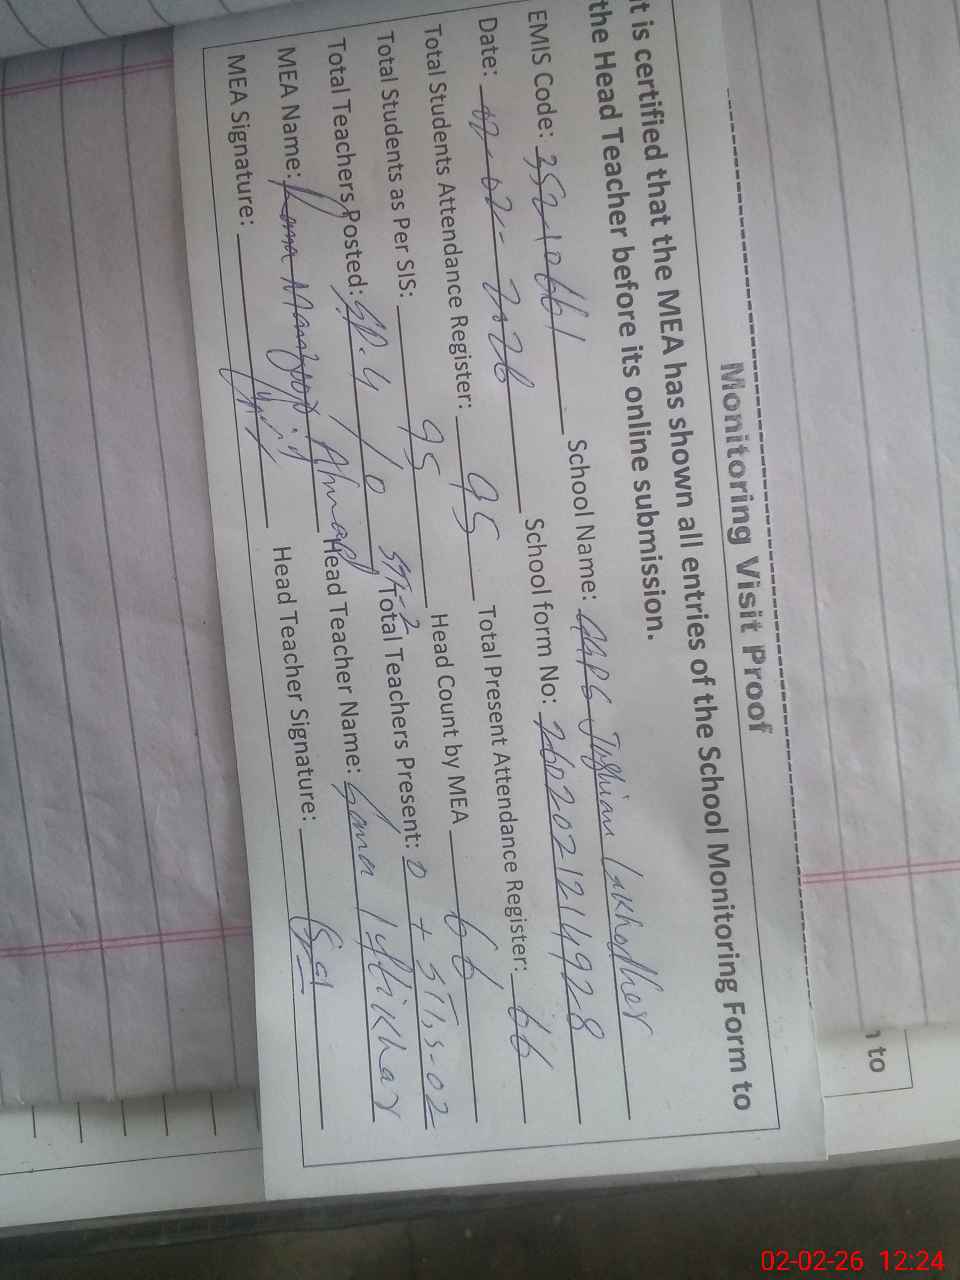 Monitoring Visit Proof
It is certified that the MEA has shown all entries of the School Monitoring Form to
the Head Teacher before its online submission.
EMIS Code: 35210661 School Name: GGPS Jughian Lakhodher
Date: 02-02-2026 School form No: 2602021214928
Total Students Attendance Register: 95 Total Present Attendance Register: 66
Total Students as Per SIS: 95 Head Count by MEA 66
Total Teachers Posted: 4 / 0 STI-2 Total Teachers Present: 0 + STIs-02
MEA Name: Ahmad Head Teacher Name: Iftikhar
MEA Signature: Head Teacher Signature:
n to
02-02-26 12:24